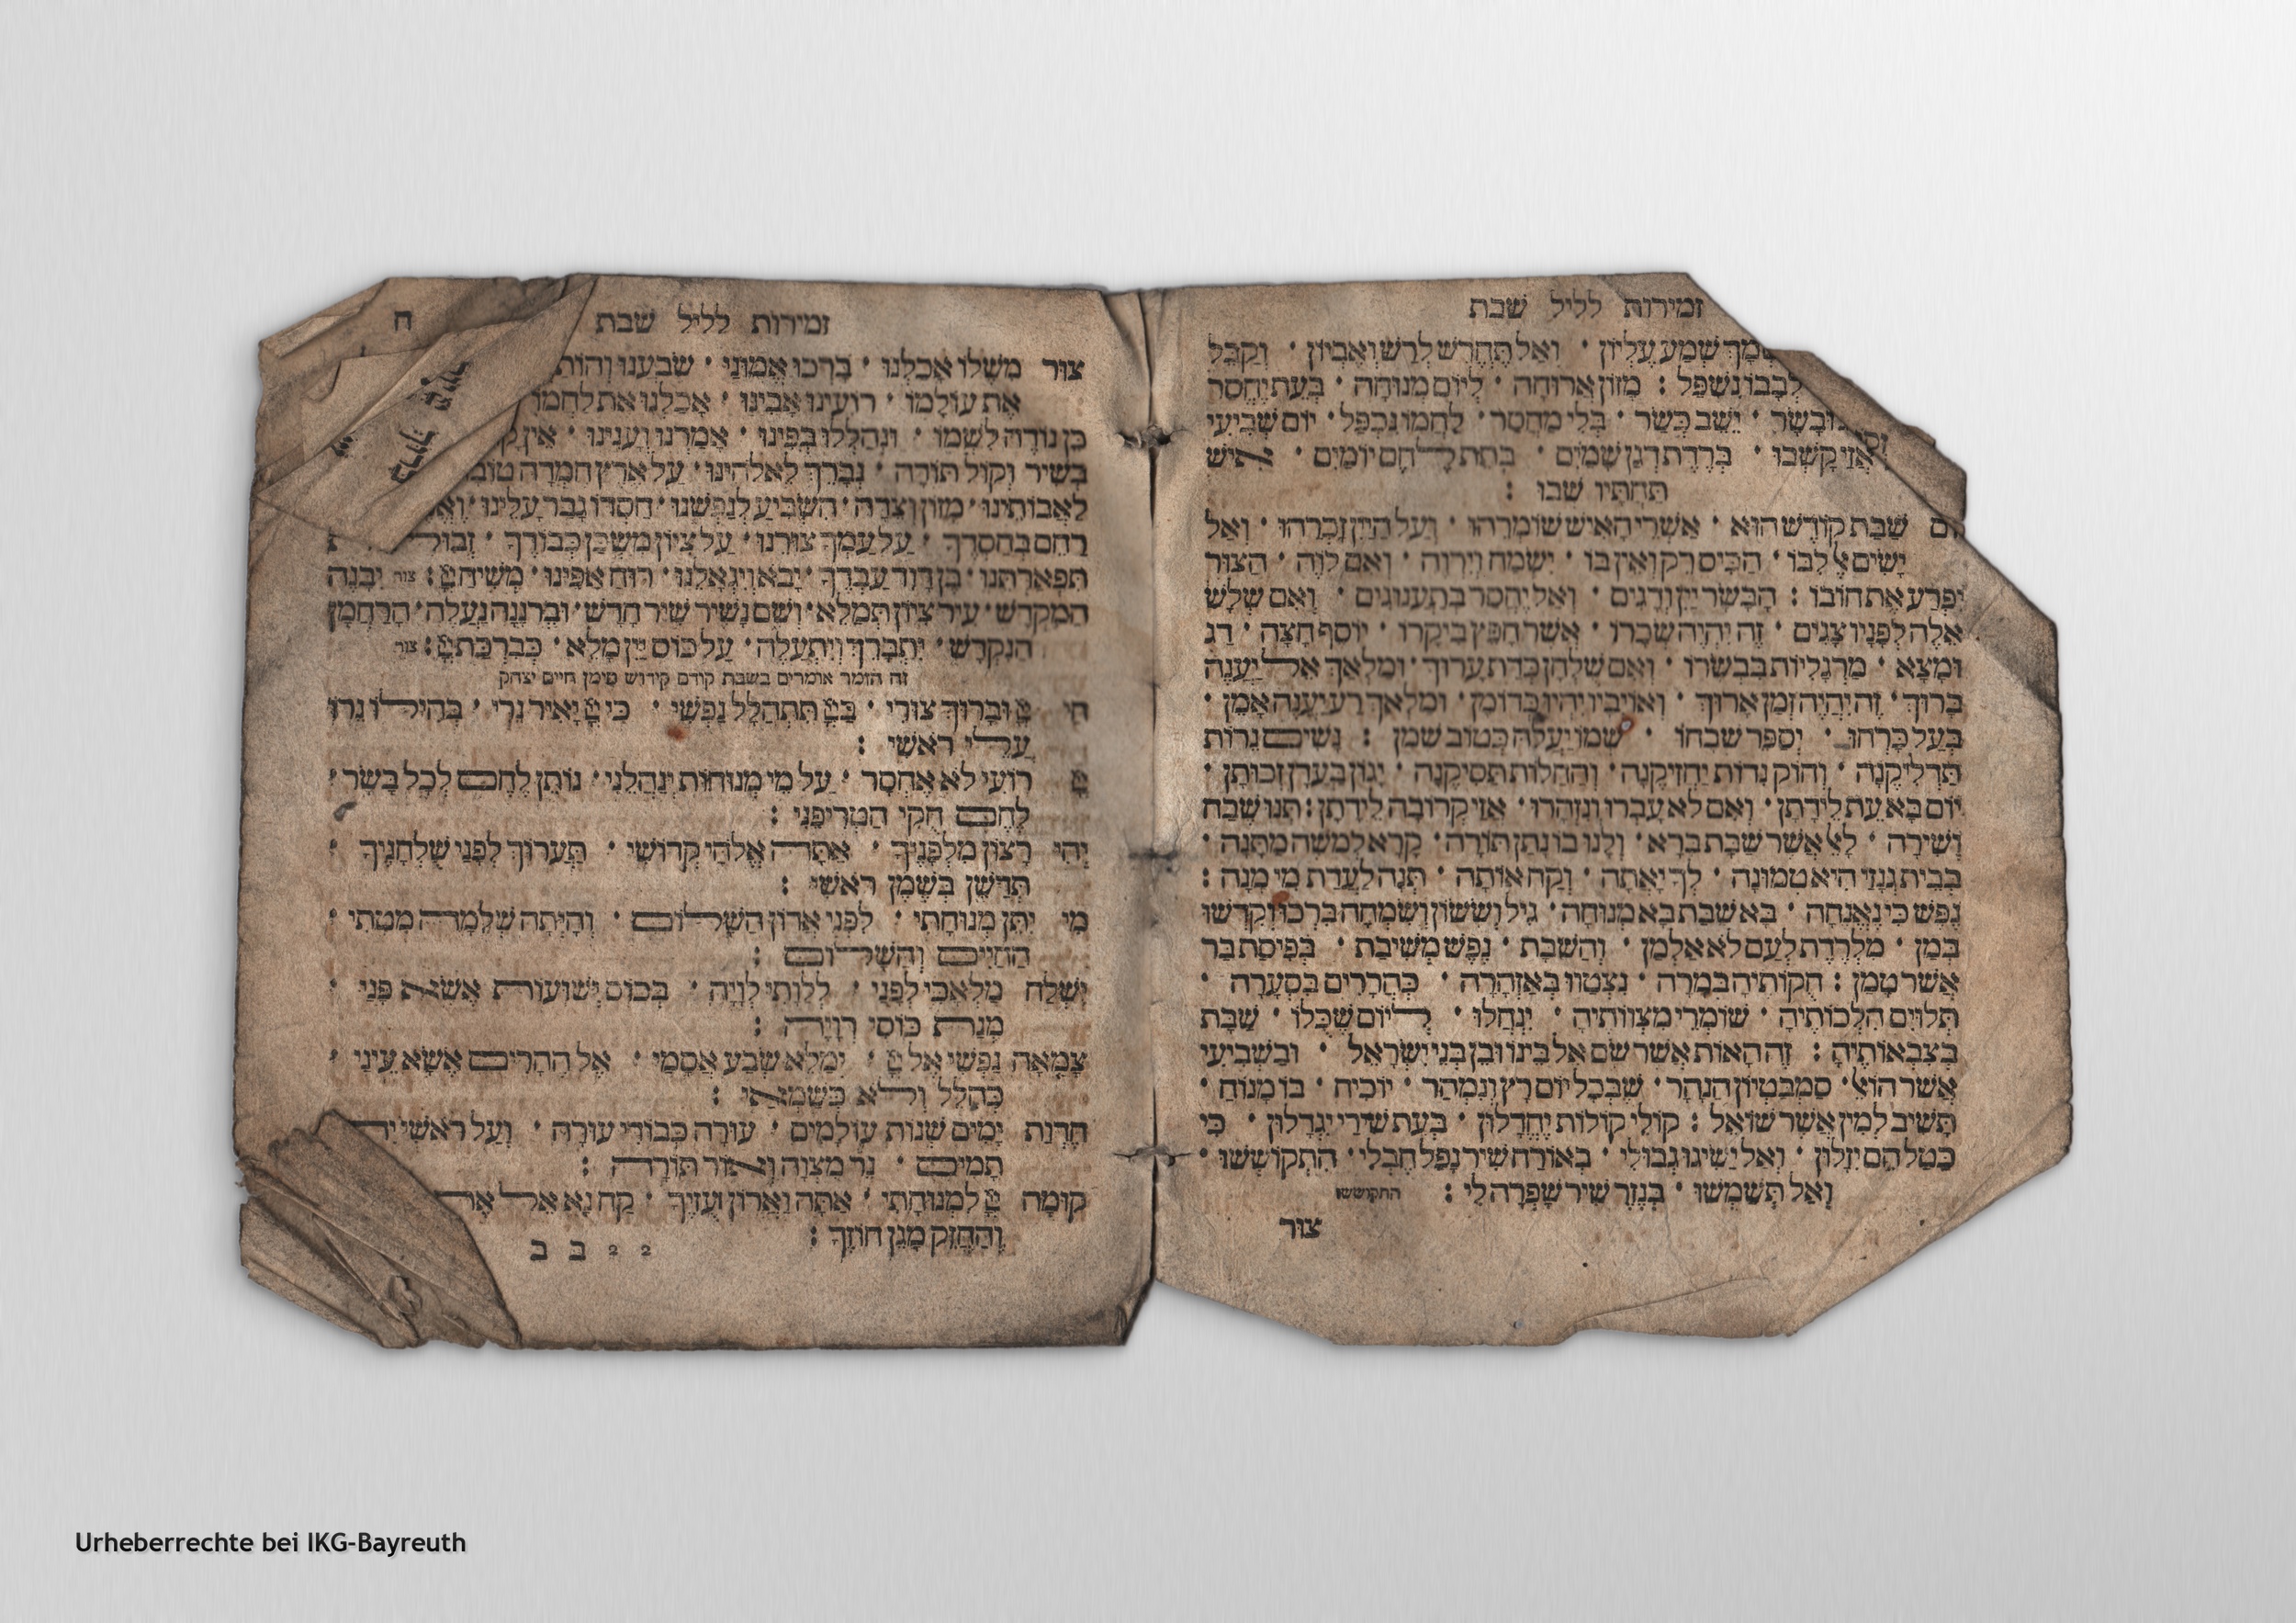 זמירות לליל שבת
שמע עליון · ואל תחרש לרש ואביון · וקבל
לבבו נשפל : מזון ארוחה · ליום מנוחה · בעת יחסר
ובשר · ישב כשר · בלי מחסר · לחמו נכפל · יום שביעי
אזי קשבו · ברדת דגן שמים · בתת לחם יומים · איש
תחתיו שבו :
שבת קודש הוא · אשרי האיש שומרהו · ועל היין זכרהו · ואל
ישים אל לבו · הכיס ריק ואין בו · ישמח וירוה · ואם לוה · הצור
יפרע את חובו : הבשר יין ודגים · ואל יחסר בתענוגים · ואם שלש
אלה לפניו צגים · זה יהיה שכרו · אשר חפץ ביקרו · יוסף חצה · דג
ומצא · מרגליות בבשרו · ואם שלחן כדת ערוך · ומלאך אל יענה
ברוך · זה יהיה זמן ארוך · ואויביו יהיו כדומן · ומלאך רע יענה אמן ·
בעל כרחו · יספר שבחו · שמו יעלה כטוב שמן : נשים נרות
תדליקנה · וחוק נדות יחזיקנה · והחלות תסיקנה · יגון בערן זכותן ·
יום בא עת לידתן · ואם לא עברו ונזהרו · אזי קרובה לידתן : תנו שבח
ושירה · לאל אשר שבת ברא · ולנו בו נתן תורה · קרא למשה מתנה ·
בבית גנזי היא טמונה · לך יאתה · וקח אותה · תנה לעדת מי מנה :
נפש כי נאנחה · בא שבת בא מנוחה · גיל וששון ושמחה ברכו וקדשו
במן · מלרדת לעם לא אלמן · והשבת · נפש משיבת · בפיסת בר
אשר טמן : חקותיה במרה · נצטוו באזהרה · כהררים בסערה ·
תלוים הלכותיה · שומרי מצוותיה · ינחלו · ליום שכלו · שבת
בצבאותיה : זה האות אשר שם אל בינו ובין בני ישראל · ובשביעי
אשר הואל · סמבטיון הנהר · שבכל יום רץ ונמהר · יוכיח · בו מנוח ·
תשיב למין אשר שואל : קולי קולות יחדלון · בעת שירי יגדלון · כי
כטל הם יזלון · ואל ישיגו גבולי · באורח שיר נפל חבלי · התקוששו ·
ואל תשמשו · בנזר שיר שפרה לי : התקוששו
צור
ח
זמירות לליל שבת
צור משלו אכלנו · ברכו אמוני · שבענו והות
את עולמו · רוענו אבינו · אכלנו את לחמו
כן נודה לשמו · ונהללו בפינו · אמרנו וענינו · אין ק
בשיר וקול תודה · נברך לאלהינו · על ארץ חמדה טוב
לאבותינו · מזון וצדה · השביע לנפשנו · חסדו גבר עלינו · וא
רחם בחסדך · על עמך צורנו · על ציון משכן כבודך · זבול
תפארתנו · בן דוד עבדך · יבא ויגאלנו · רוח אפינו · משיח : צור יבנה
המקדש · עיר ציון תמלא · ושם נשיר שיר חדש · וברננה נעלה · הרחמן
הנקדש · יתברך ויתעלה · על כוס יין מלא · כברכת : צור
זה הזמר אומרים בשבת קודם קידוש סימן חיים יצחק
חי וברוך צורי · תתהלל נפשי · כי יאיר נרי · בהילו נרו
עלי ראשי :
רועי לא אחסר · על מי מנוחות ינהלני · נותן לחם לכל בשר ·
לחם חקי הטריפני :
יהי רצון מלפניך · אתה אלהי קדושי · תערוך לפני שלחניך ·
תדשן בשמן ראשי :
מי יתן מנוחתי · לפני ארון השלום · והיתה שלמה מטתי ·
החיים והשלום :
ישלח מלאכי לפני · ללותי לויה · בכוס ישועות אשא פני ·
מנת כוסי רויה :
צמאה נפשי אל · ימלא שבע אסמי · אל ההרים אשא עיני ·
כהלל ולא כשמאי :
חדות ימים שנות עולמים · עורה כבודי עורה · ועל ראשי
תמים · נר מצוה ואור תורה :
קומה למנוחתי · אתה וארון עזיך · קח נא אל
והחזק מגן חוזך :
2 2 ב ב
Urheberrechte bei IKG-Bayreuth